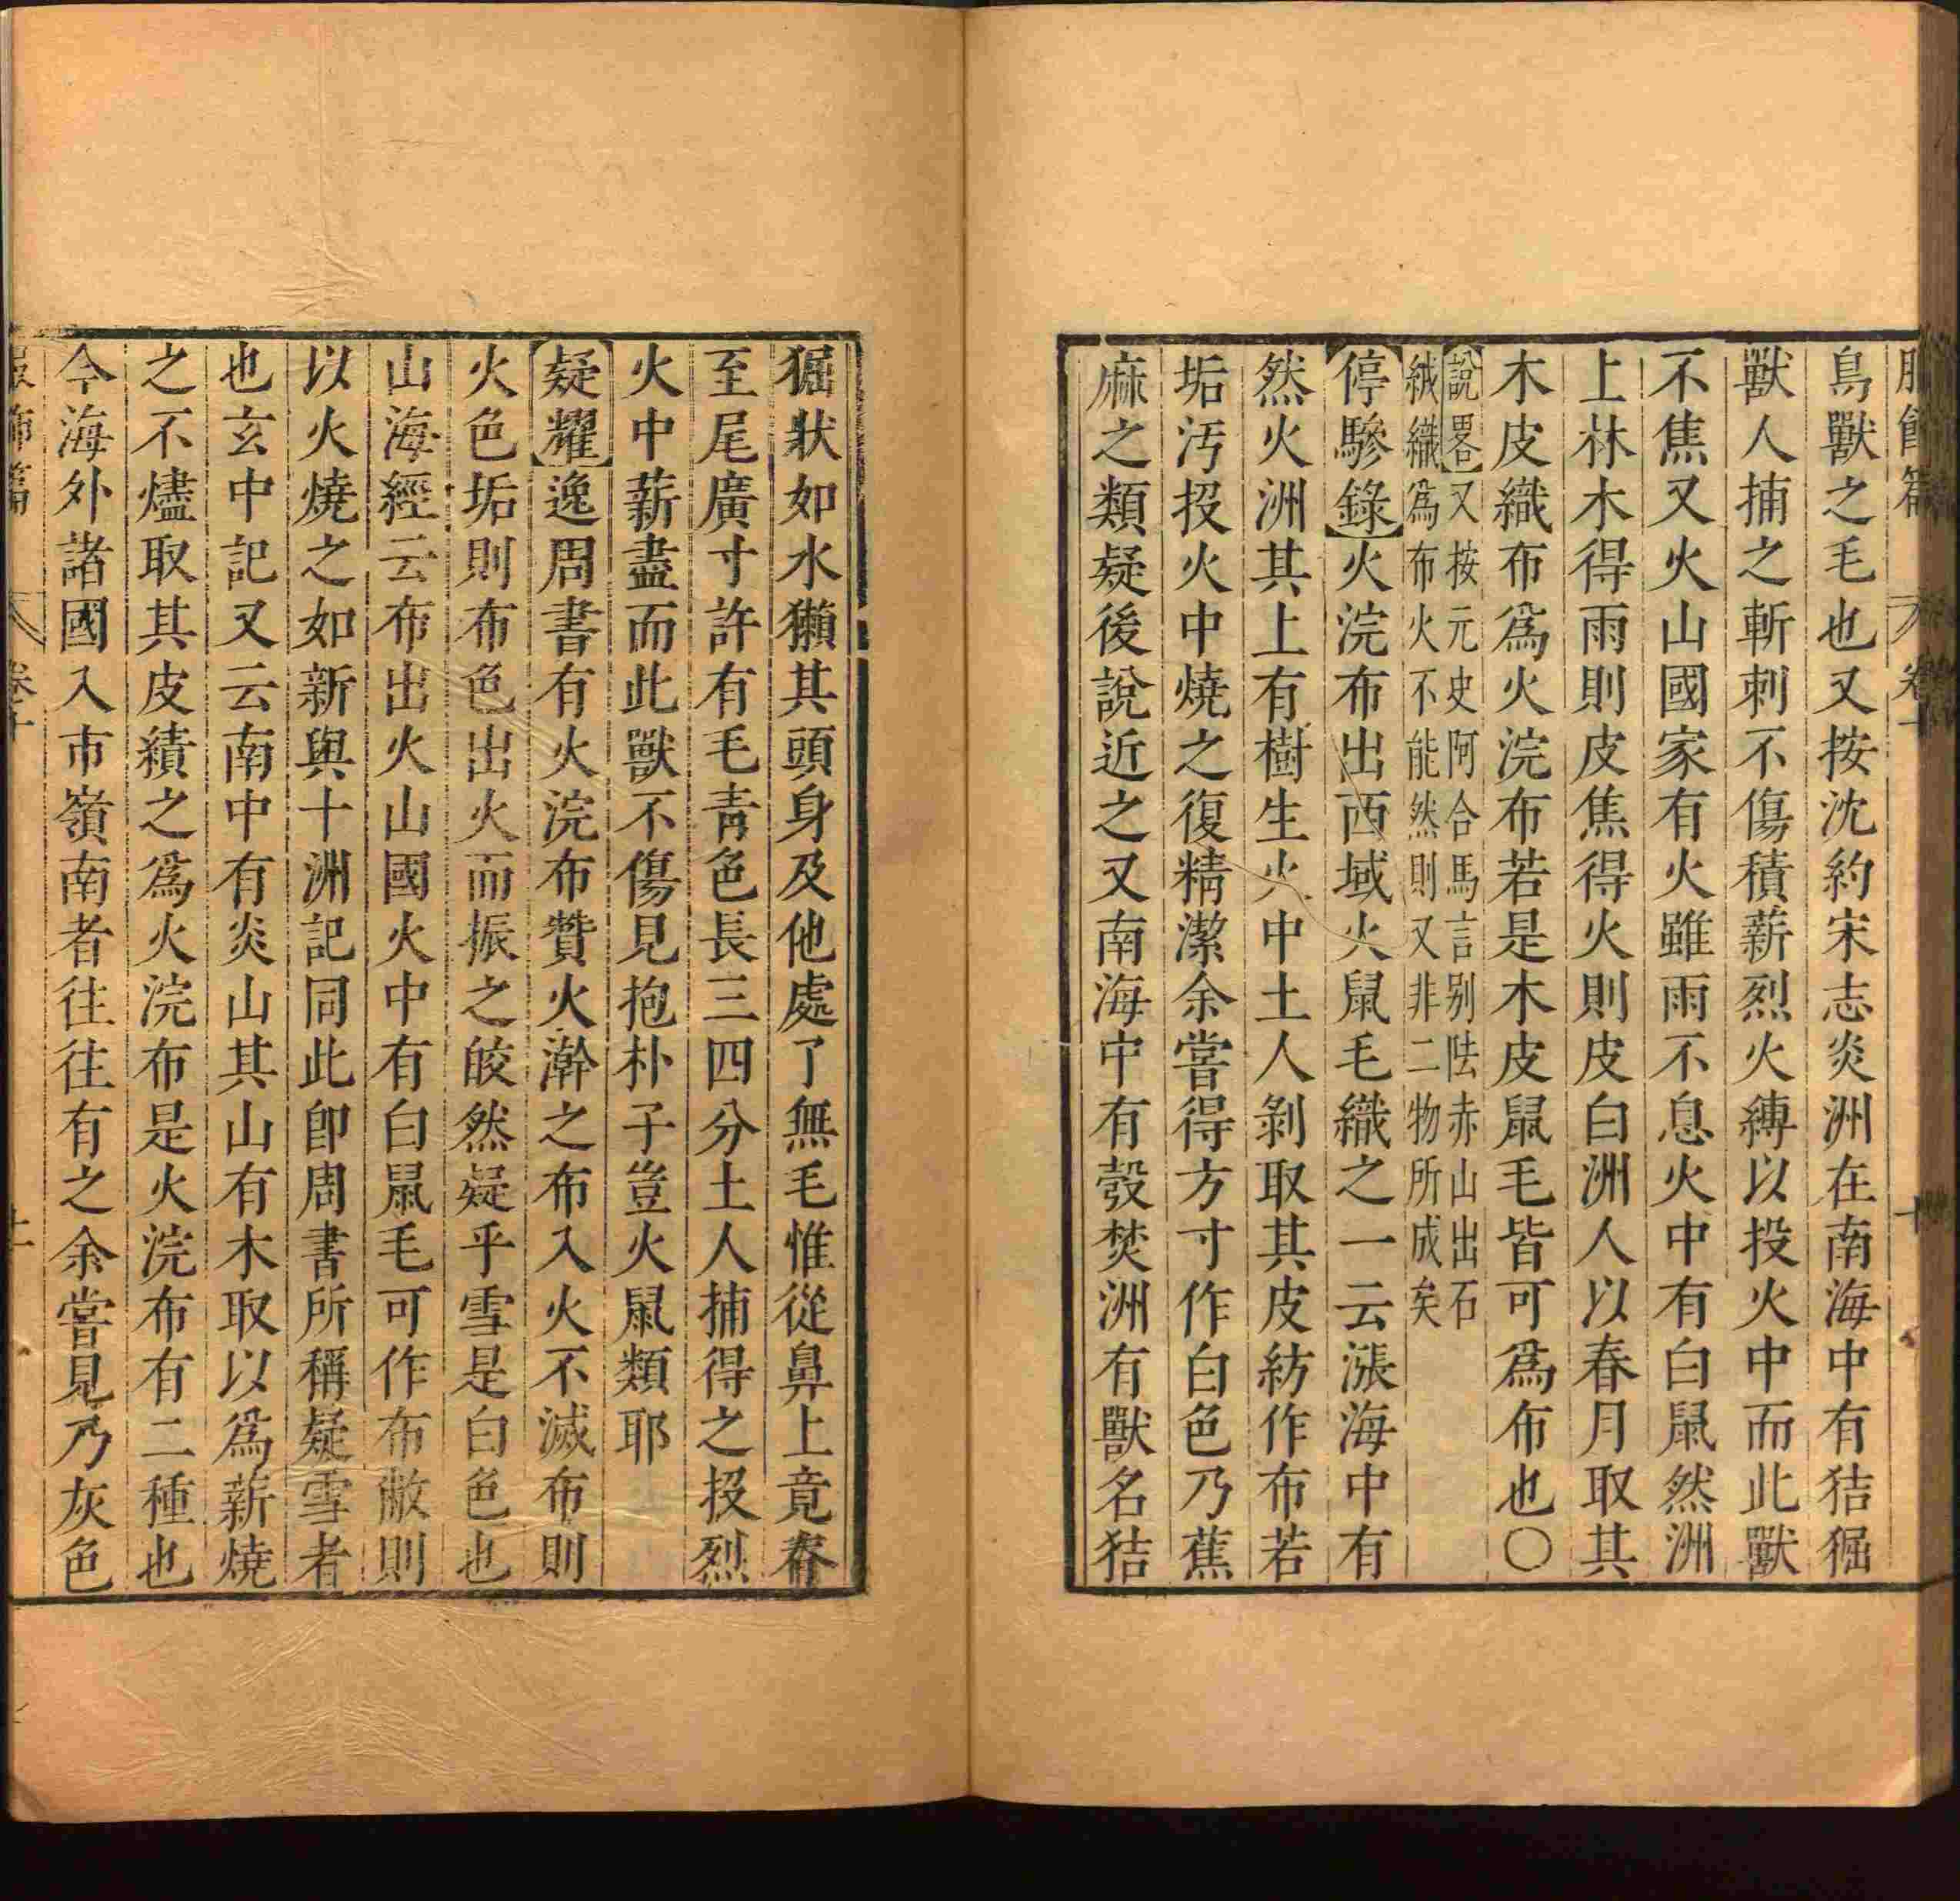 鳥獸之毛也又按沈約宋志炎洲在南海中有狤𤟎
獸人捕之斬刺不傷積薪烈火縛以投火中而此獸
不焦又火山國家有火雖雨不息火中有白鼠然洲
上林木得雨則皮焦得火則皮白洲人以春月取其
木皮織布爲火浣布若是木皮鼠毛皆可爲布也〇
說畧又按元史阿合馬言别怯赤山出石
絨織爲布火不能然則又非二物所成矣
停驂錄火浣布出西域火鼠毛織之一云漲海中有
然火洲其上有樹生火中土人剝取其皮紡作布若
垢汚投火中燒之復精潔余嘗得方寸作白色乃蕉
麻之類疑後說近之又南海中有㷤焚洲有獸名狤
𤟎狀如水獺其頭身及他處了無毛惟從鼻上竟脊
至尾廣寸許有毛青色長三四分土人捕得之投烈
火中薪盡而此獸不傷見抱朴子豈火鼠類耶
疑耀逸周書有火浣布贊火澣之布入火不滅布則
火色垢則布色出火而振之皎然疑乎雪是白色也
山海經云布出火山國火中有白鼠毛可作布敝則
以火燒之如新與十洲記同此卽周書所稱疑雪者
也玄中記又云南中有炎山其山有木取以爲薪燒
之不燼取其皮績之爲火浣布是火浣布有二種也
今海外諸國入市嶺南者往往有之余嘗見乃灰色